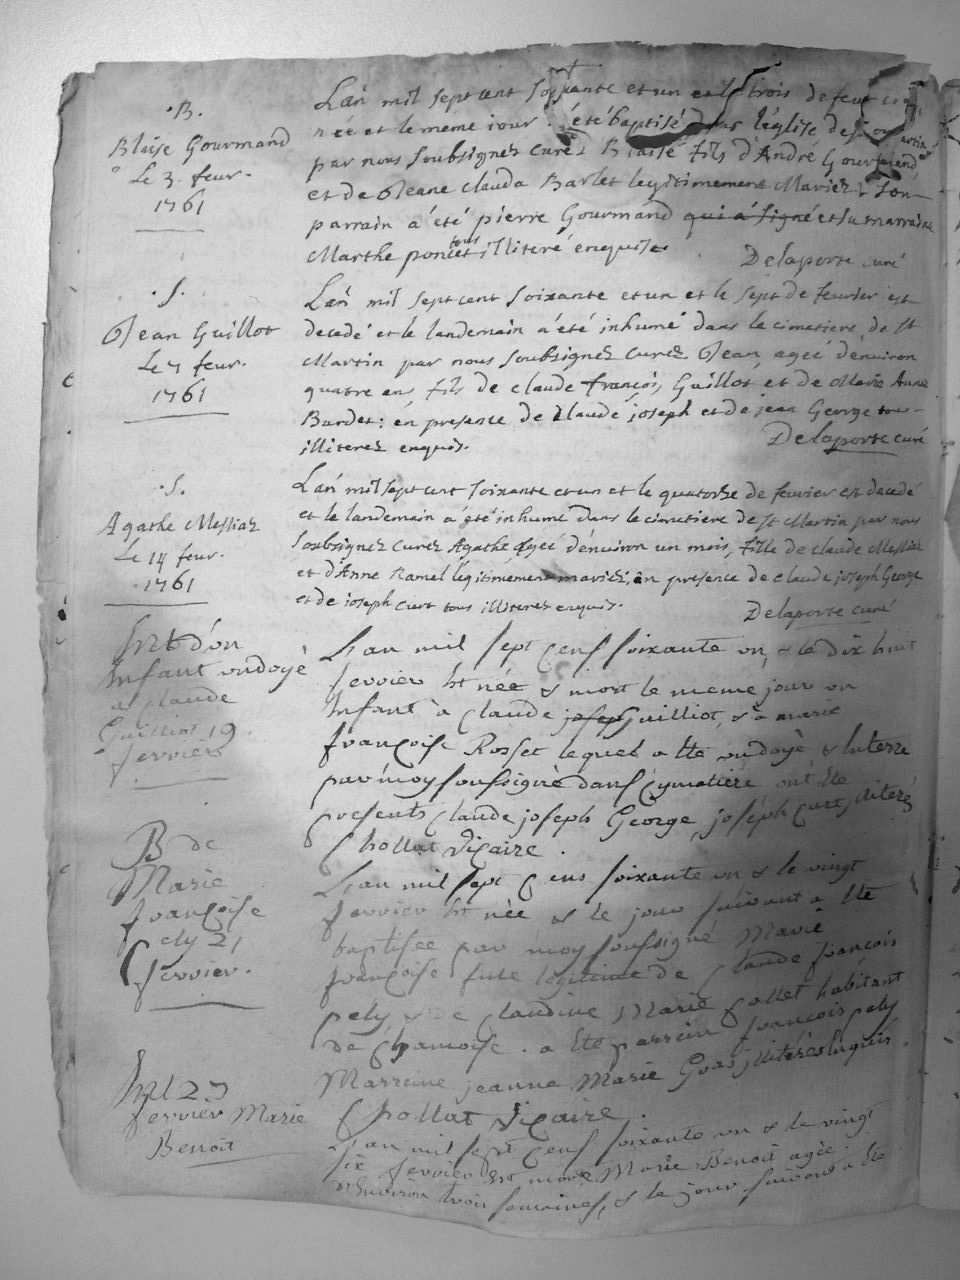 .B.
Blaise Gourmand
Le 3. feur.
1761
L'an mil sept cent soixante et un et le trois de feur
née et le même iour été baptisé dans l'église de
par nous soubsignez curez Blaise fils d'André Gourmand
et de Jeane Clauda Barlet legitimement Mariez; son
parrain a été pierre Gourmand qui a signé et sa marraine
Marthe poncet tous illiteré enquise.
Delaporte curé
.S.
Jean Guillot
Le 7 feur.
1761
L'an mil sept cent soixante et un et le sept de feurier est
decedé et le landemain a été inhumé dans le cimetiere de St
Martin par nous soubsignez curez Jean, ageé d'énuiron
quatre ens, fils de claude françois Guillot et de Marie Anne
Burdet: én presence de Claude joseph et de jean George tous
illiterez enquis.
Delaporte curé
.S.
Agathe Messiaz
Le 14 feur.
.1761
L'an mil sept cent soixante et un et le quatorse de feurier est decedé
et le landemain a été inhumé dans le cimetiere de St Martin par nous
soubsignez curez Agathe ageé d'énuiron un mois, fille de claude Messiaz
et d'Anne Ramel legitimement mariez, én presence de claude joseph George
et de joseph curt tous illiterez enquis.
Delaporte curé
d'on
Infant ondoyé
a claude
Guilliot 19
fevrier
L'an mil sept cens soixante un, & le dix huit
fevrier Et née & mort le meme jour un
Infant à Claude joseph Guilliot, & à marie
françoise Rosset lequel a Ete ondoyè & Interre
par moy soussignè dans Cymatiére ont Ete
presents Claude joseph George, joséph Curt, illiterés
Chollat Vicaire.
B de
Marie
françoise
pely 21
fevrier.
L'an mil sept Cens soixante un & le vingt
fevrier Et née & le jour suivant a Ete
baptisée par moy soussigné Marie
françoise fille legitime de Claude françois
pely & de Claudine Marie Collet habitant
de Chamoise. a Ete parrein françois pely
Marreine jeanne Marie Goas jlliterés Enquis.
Chollat Vicaire.
27
fevrier Marie
Benoit
L'an mil sept cens soixante un & le vingt
six fevrier Est morte Marie Benoit agée
d'Environ trois semaines, & le jour suivant a Ete